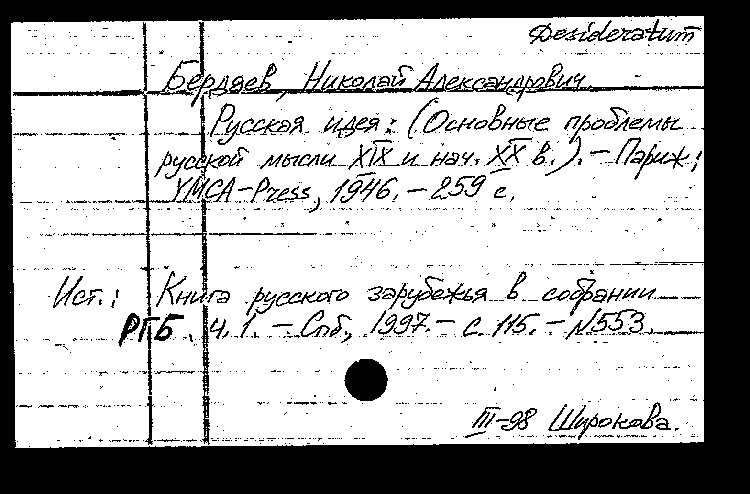 Desideratum
Бердяев, Николай Александрович.
Русская идея: (Основные проблемы
русской мысли XIX и нач. XX в.). – Париж;
YMCA-Press, 1946. – 259 с.
Ист.: Книга русского зарубежья в собрании
РГБ. ч. 1. – Спб, 1997. – с. 115. – №553.
III-98 Широкова.